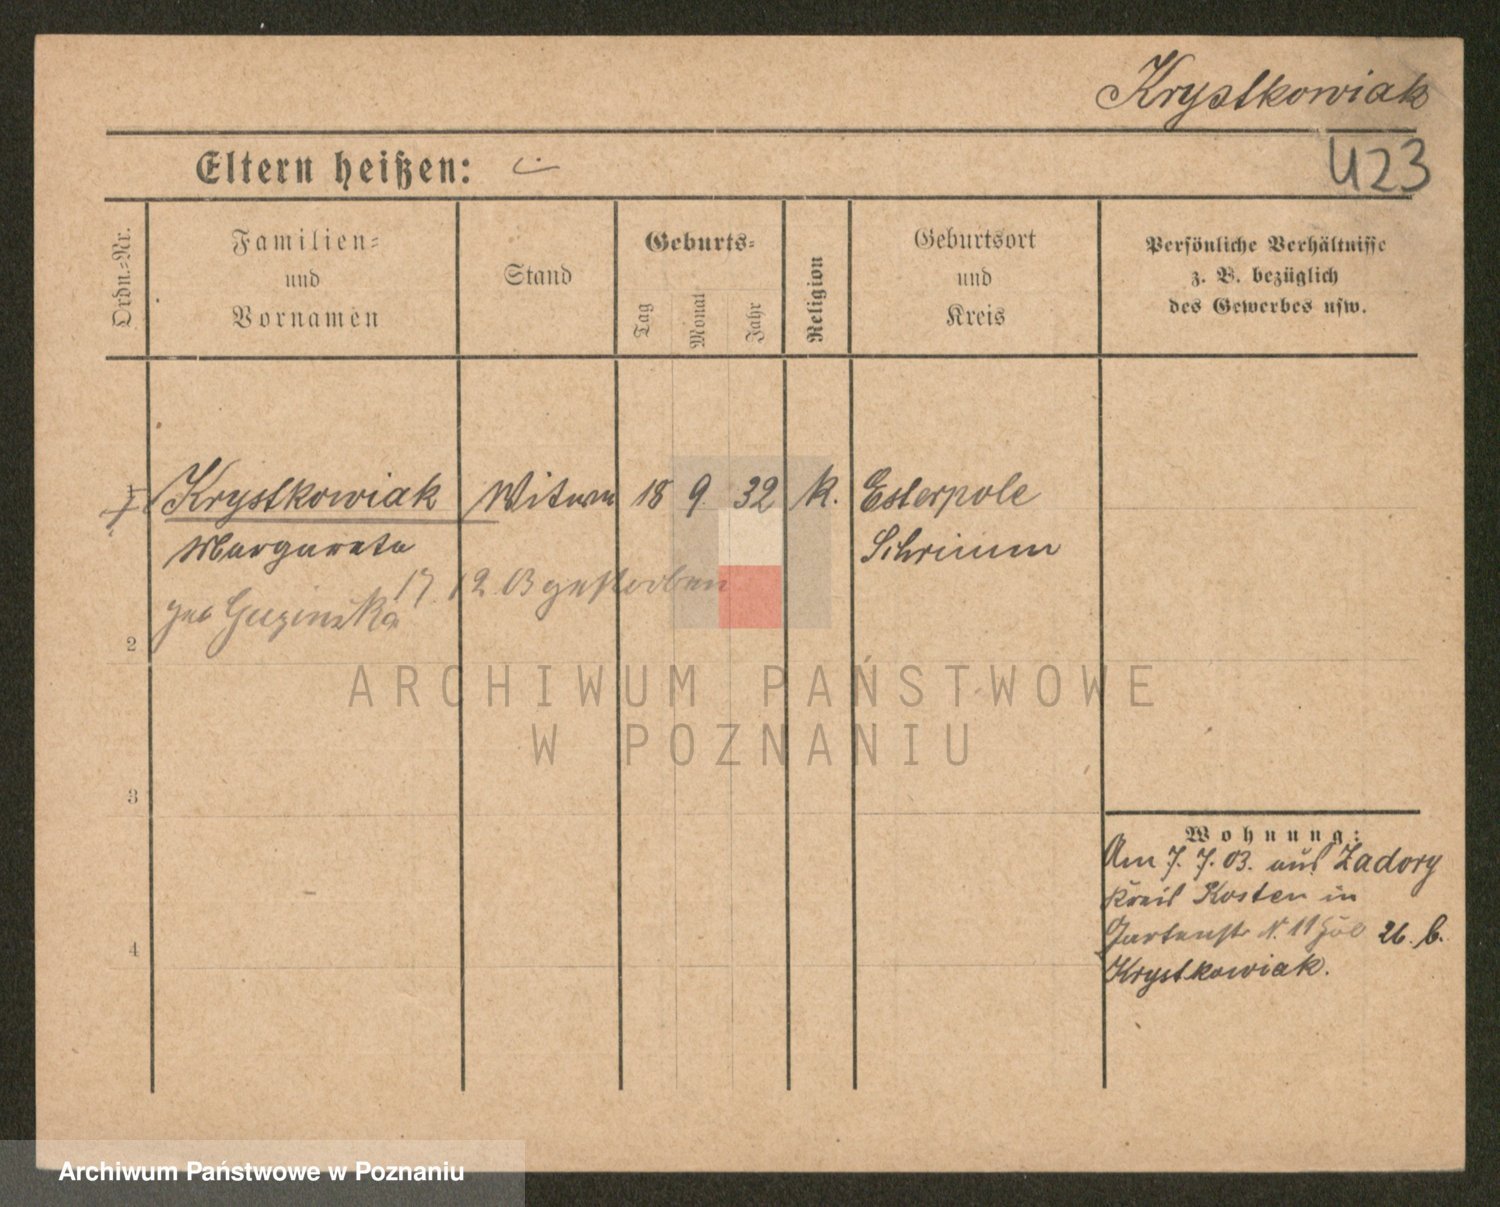 Krystkowiak
Eltern heißen:
U23
Ordn.-Nr.
Familien-
und
Vornamen
Stand
Geburts-
Tag
Monat
Jahr
Religion
Geburtsort
und
Kreis
Persönliche Verhältnisse
z. B. bezüglich
des Gewerbes usw.
Krystkowiak Witwe 18 9. 32 k. Esterpole
Margareta Schrimm
17. 12 03 gestorben
geb
2
ARCHIWUM PAŃSTWOWE
W POZNANIU
3
Wohnung:
Am 7. 7. 03. aus Zadory
Kreis Kosten in
Gartenstr N. 11 26. b.
Krystkowiak.
4
Archiwum Państwowe w Poznaniu